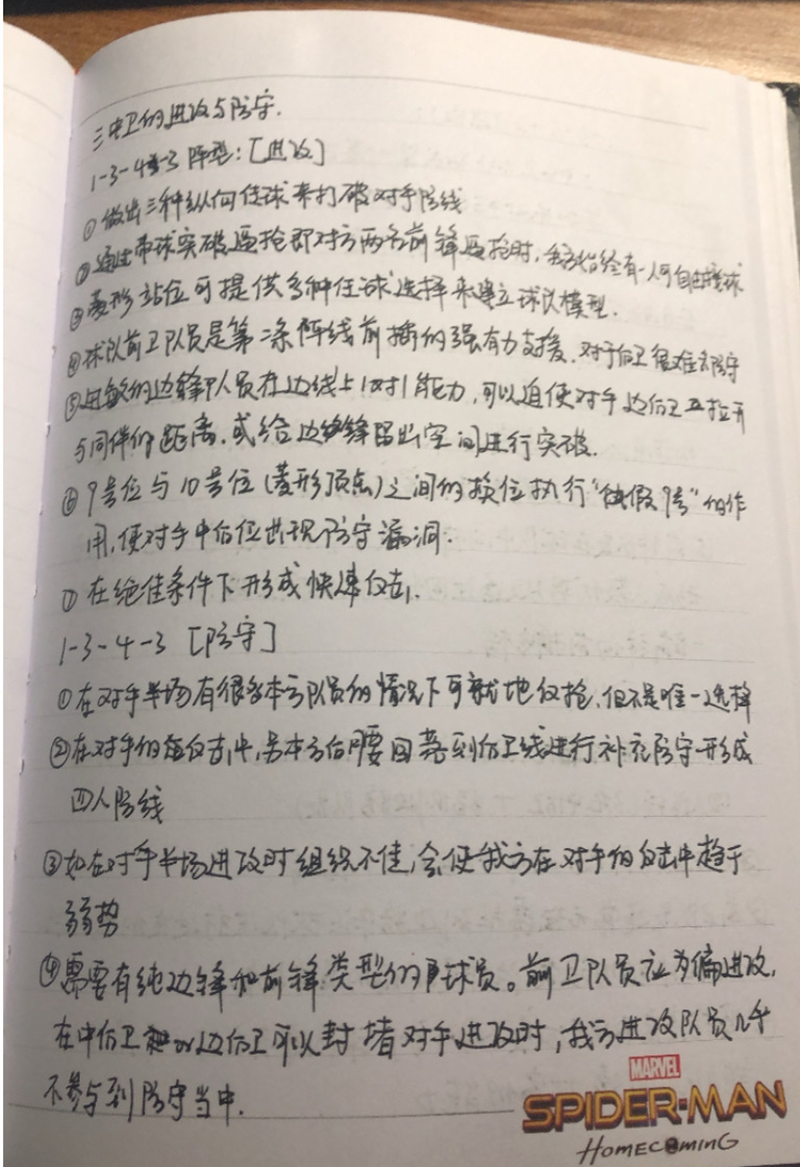 三中卫的进攻与防守.
1-3-4-3 阵型:[进攻]
① 做出三种纵向传球来打破对手防线
② 通过带球突破逼抢即对方两名前锋逼抢时,我方始终有一人可自由接球
③ 菱形站位可提供多种传球选择来建立球队模型.
④ 球队前卫队员是第二条阵线前插的强有力支援.对手后卫很难去防守
⑤ 过敏的边锋队员在边线上1对1能力,可以迫使对手边后卫拉开
与同伴的距离.或给边锋留出空间进行突破.
⑥ 9号位与10号位(菱形顶点)之间的换位执行“假9号”的作
用,使对手中后位出现防守漏洞.
⑦ 在绝佳条件下形成快速反击.
1-3-4-3 [防守]
① 在对手半场有很多本方队员的情况下可就地反抢,但不是唯一选择
② 在对手的反击中,本方后腰回落到后卫线进行补充防守形成
四人防线
③ 如在对手半场进攻时组织不佳,会使我方在对手的反击中趋于
弱势
④ 需要有纯边锋和前锋类型的球员。前卫队员应为偏进攻,
在中后卫or边后卫可以封堵对手进攻时,我方进攻队员几乎
不参与到防守当中.
MARVEL
SPIDER-MAN
HOMECOMING